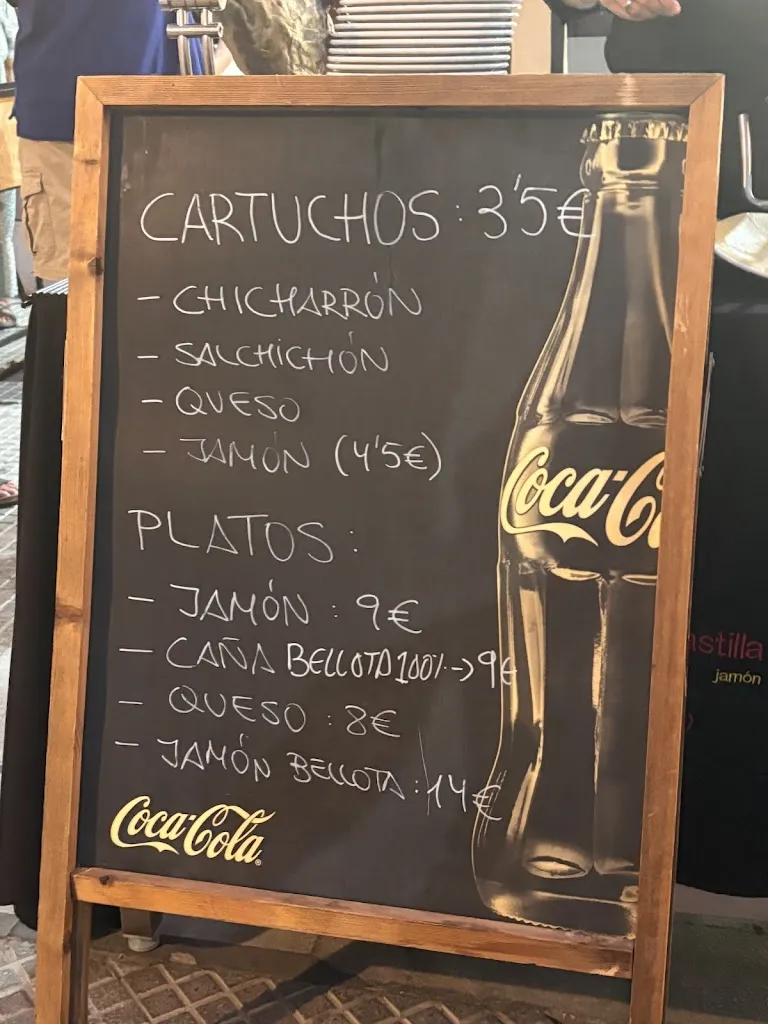 CARTUCHOS: 3'5€
- CHICHARRÓN
- SALCHICHÓN
- QUESO
- JAMÓN (4'5€)
Coca-C
PLATOS:
- JAMÓN: 9€
- CAÑA BELLOTA 100% -> 9€
- QUESO: 8€
- JAMÓN BELLOTA: 14€
Coca-Cola
astilla
jamón